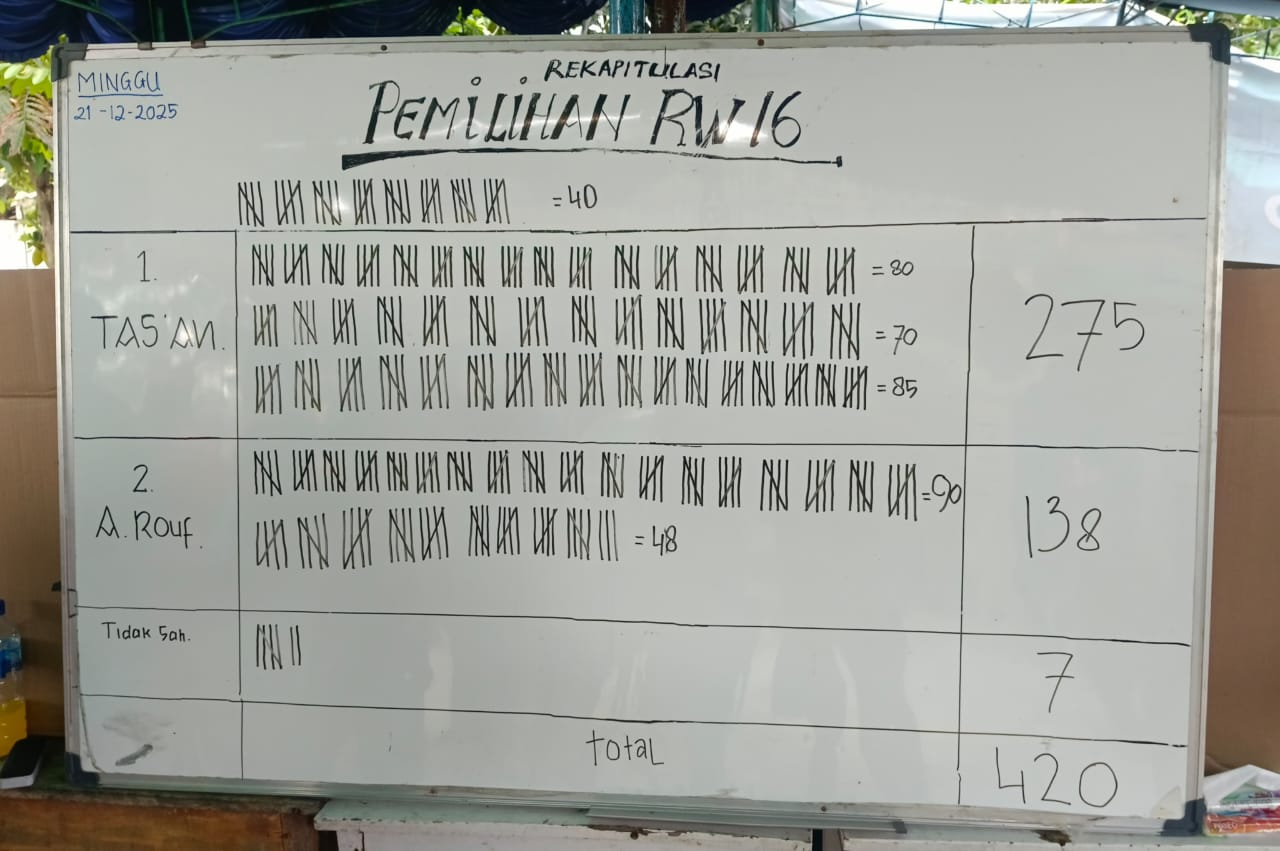 MINGGU
21-12-2025
REKAPITULASI
PEMILIHAN RW 16
= 40
1.
TAS'AN.
= 80
= 70
= 85
275
2.
A. Rouf.
= 90
= 48
138
Tidak Sah.
7
total
420